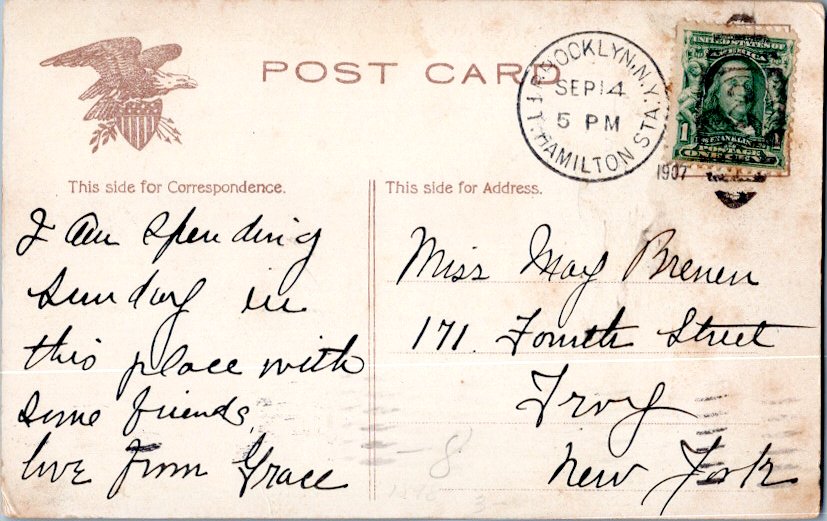 POST CARD
BROOKLYN, N.Y.
SEP 14
5 PM
FT. HAMILTON STA.
1907
UNITED STATES OF
AMERICA
1
FRANKLIN
POSTAGE
ONE
This side for Correspondence.
I am spending
Sunday in
this place with
some friends
love from Grace
This side for Address.
Miss May Brenen
171. Fourth Street
Troy
New York
8